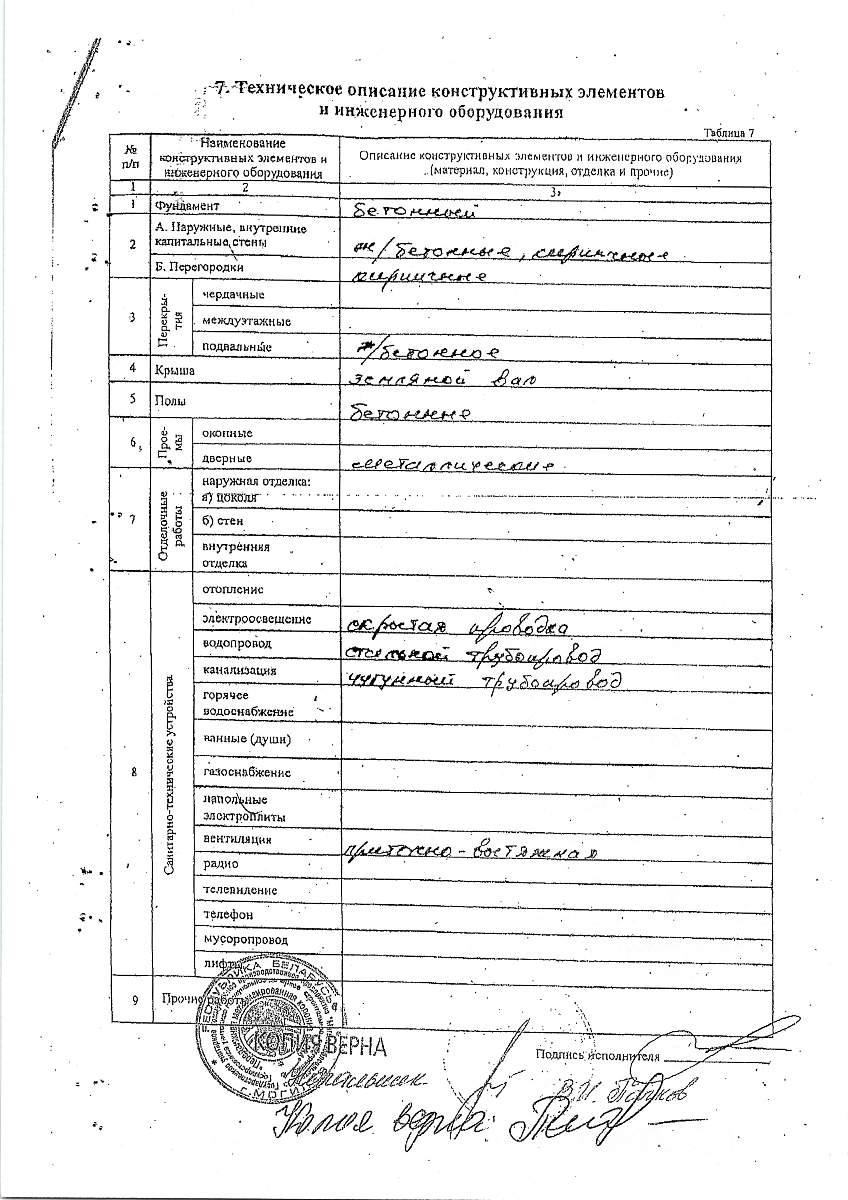 7. Техническое описание конструктивных элементов
и инженерного оборудования
Таблица 7
№ п/п
Наименование конструктивных элементов и инженерного оборудования
Описание конструктивных элементов и инженерного оборудования (материал, конструкция, отделка и прочие)
1 2 3
1 Фундамент бетонный
2 А. Наружные, внутренние капитальные стены ж/бетонные, кирпичные
Б. Перегородки кирпичные
3 Перекрытия
чердачные
междуэтажные
подвальные ж/бетонное
4 Крыша земляной вал
5 Полы бетонные
6 Проемы
оконные
дверные металлические
7 Отделочные работы
наружная отделка:
а) цоколя
б) стен
внутренняя отделка
8 Санитарно-технические устройства
отопление
электроосвещение скрытая проводка
водопровод стальной трубопровод
канализация чугунный трубопровод
горячее водоснабжение
ванные (души)
газоснабжение
напольные электроплиты
вентиляция приточно-вытяжная
радио
телевидение
телефон
мусоропровод
лифты
9 Прочие работы
РЕСПУБЛИКА БЕЛАРУСЬ
КОПИЯ ВЕРНА
Подпись исполнителя
Копия верна